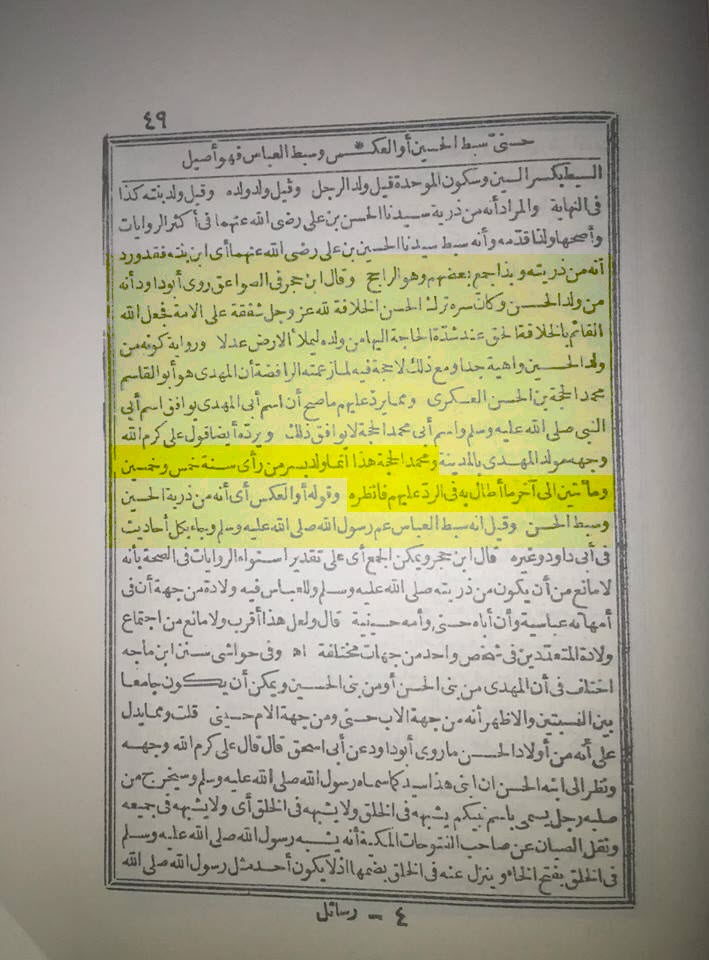 ٤٩
حسنىّ سبط الحسين أو العكـ * ـس وسبط العباس فهو أصيل
السبط بكسر السين وسكون الموحدة قيل ولد الرجل وقيل ولد ولده وقيل ولد بنته كذا
فى النهاية والمراد أنه من ذرية سيدنا الحسن بن على رضى الله عنهما فى أكثر الروايات
وأصحها ولذا قدّمه وأنه سبط سيدنا الحسين بن على رضى الله عنهما أى ابن بنته فقد ورد
أنه من ذريته وبذا جمع بعضهم وهو الراجح وقال ابن حجر فى الصواعق روى أبو داود أنه
من ولد الحسن وكان سره ترك الحسن الخلافة لله عز وجل شفقة على الامة فجعل الله
القائم بالخلافة الحق عند شدّة الحاجة اليها من ولده ليملأ الارض عدلا ورواية كونه من
ولد الحسين واهية جدا ومع ذلك لا حجة فيه لما زعمته الرافضة أن المهدى هو أبو القاسم
محمد الحجة بن الحسن العسكرى ومما يردّ عليهم ما صح أن اسم أبى المهدى يوافق اسم أبى
النبى صلى الله عليه وسلم واسم أبى محمد الحجة لا يوافق ذلك ويردّه أيضا قول على كرم الله
وجهه مولد المهدى بالمدينة ومحمد الحجة هذا انما ولد بسر من رأى سنة خمس وخمسين
ومائتين الى آخر ما أطال به فى الردّ عليهم فانظره وقوله أو العكس أى أنه من ذرية الحسين
وسبط الحسن وقيل انه سبط العباس عم رسول الله صلى الله عليه وسلم وجاء بكل أحاديث
فى أبى داود وغيره قال ابن حجر ويمكن الجمع أى على تقدير استواء الروايات فى الصحة بأنه
لا مانع من أن يكون من ذريته صلى الله عليه وسلم وللعباس فيه ولادة من جهة أن فى
أمهاته عباسية وأن أباه حسنى وأمه حسينية قال ولعل هذا أقرب ولا مانع من اجتماع
ولادة المتعددين فى شخص واحد من جهات مختلفة اه وفى حواشى سنن ابن ماجه
اختلف فى أن المهدى من بنى الحسن أو من بنى الحسين ويمكن أن يكون جامعا
بين النسبتين والاظهر أنه من جهة الاب حسنى ومن جهة الام حسينى قلت ومما يدل
على أنه من أولاد الحسن ما روى أبو داود عن أبى اسحق قال قال على كرم الله وجهه
ونظر الى ابنه الحسن ان ابنى هذا سيد كما سماه رسول الله صلى الله عليه وسلم وسيخرج من
صلبه رجل يسمى باسم نبيكم يشبهه فى الخلق ولا يشبهه فى الخلق أى ولا يشبهه فى جميعه
ونقل الصبان عن صاحب الفتوحات المكية أنه يشبه رسول الله صلى الله عليه وسلم
فى الخلق بفتح الخاء وينزل عنه فى الخلق بضمها اذ لا يكون أحد مثل رسول الله صلى الله
٤ - رسائل